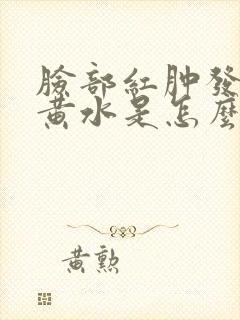 臉部紅肿發
黃水是怎麼
黃勲